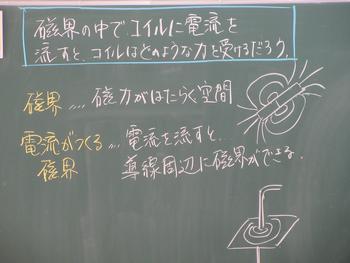 磁界の中でコイルに電流を
流すと、コイルはどのような力を受けるだろう。
磁界 ‥‥ 磁力がはたらく空間
電流がつくる ‥‥ 電流を流すと、
磁界 導線周辺に磁界ができる。